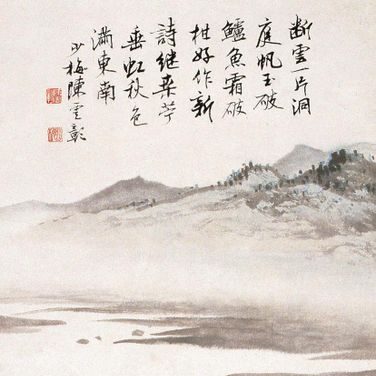 断雲一片洞
庭帆玉破
鱸魚霜破
柑好作新
詩継桒苧
垂虹秋色
滿東南
少梅陳雲彰